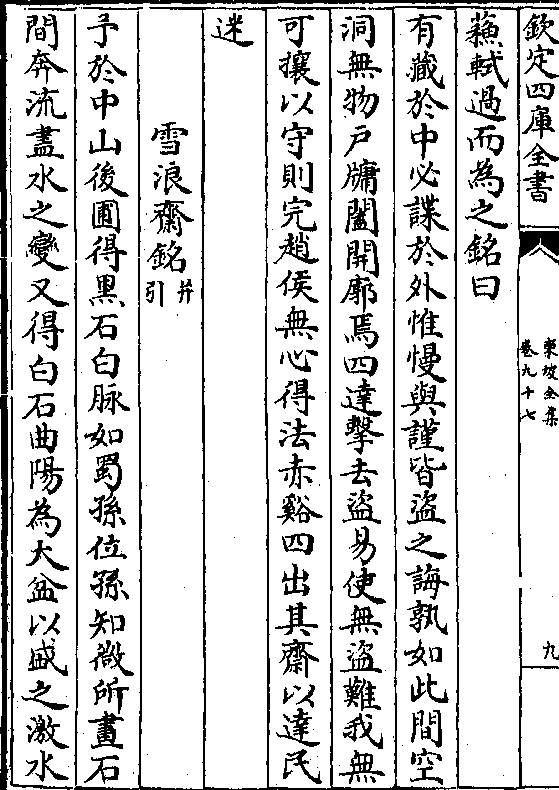 欽定四庫全書
東坡全集
卷九十七
九
蘇軾過而為之銘曰
有藏於中必諜於外惟慢與謹皆盜之誨孰如此間空
洞無物戶牖闔開廓焉四達擊去盜易使無盜難我無
可攘以守則完趙侯無心得法赤谿四出其齋以達民
迷
雪浪齋銘并引
予於中山後圃得黑石白脉如蜀孫位孫知微所畫石
間奔流盡水之變又得白石曲陽為大盆以盛之激水